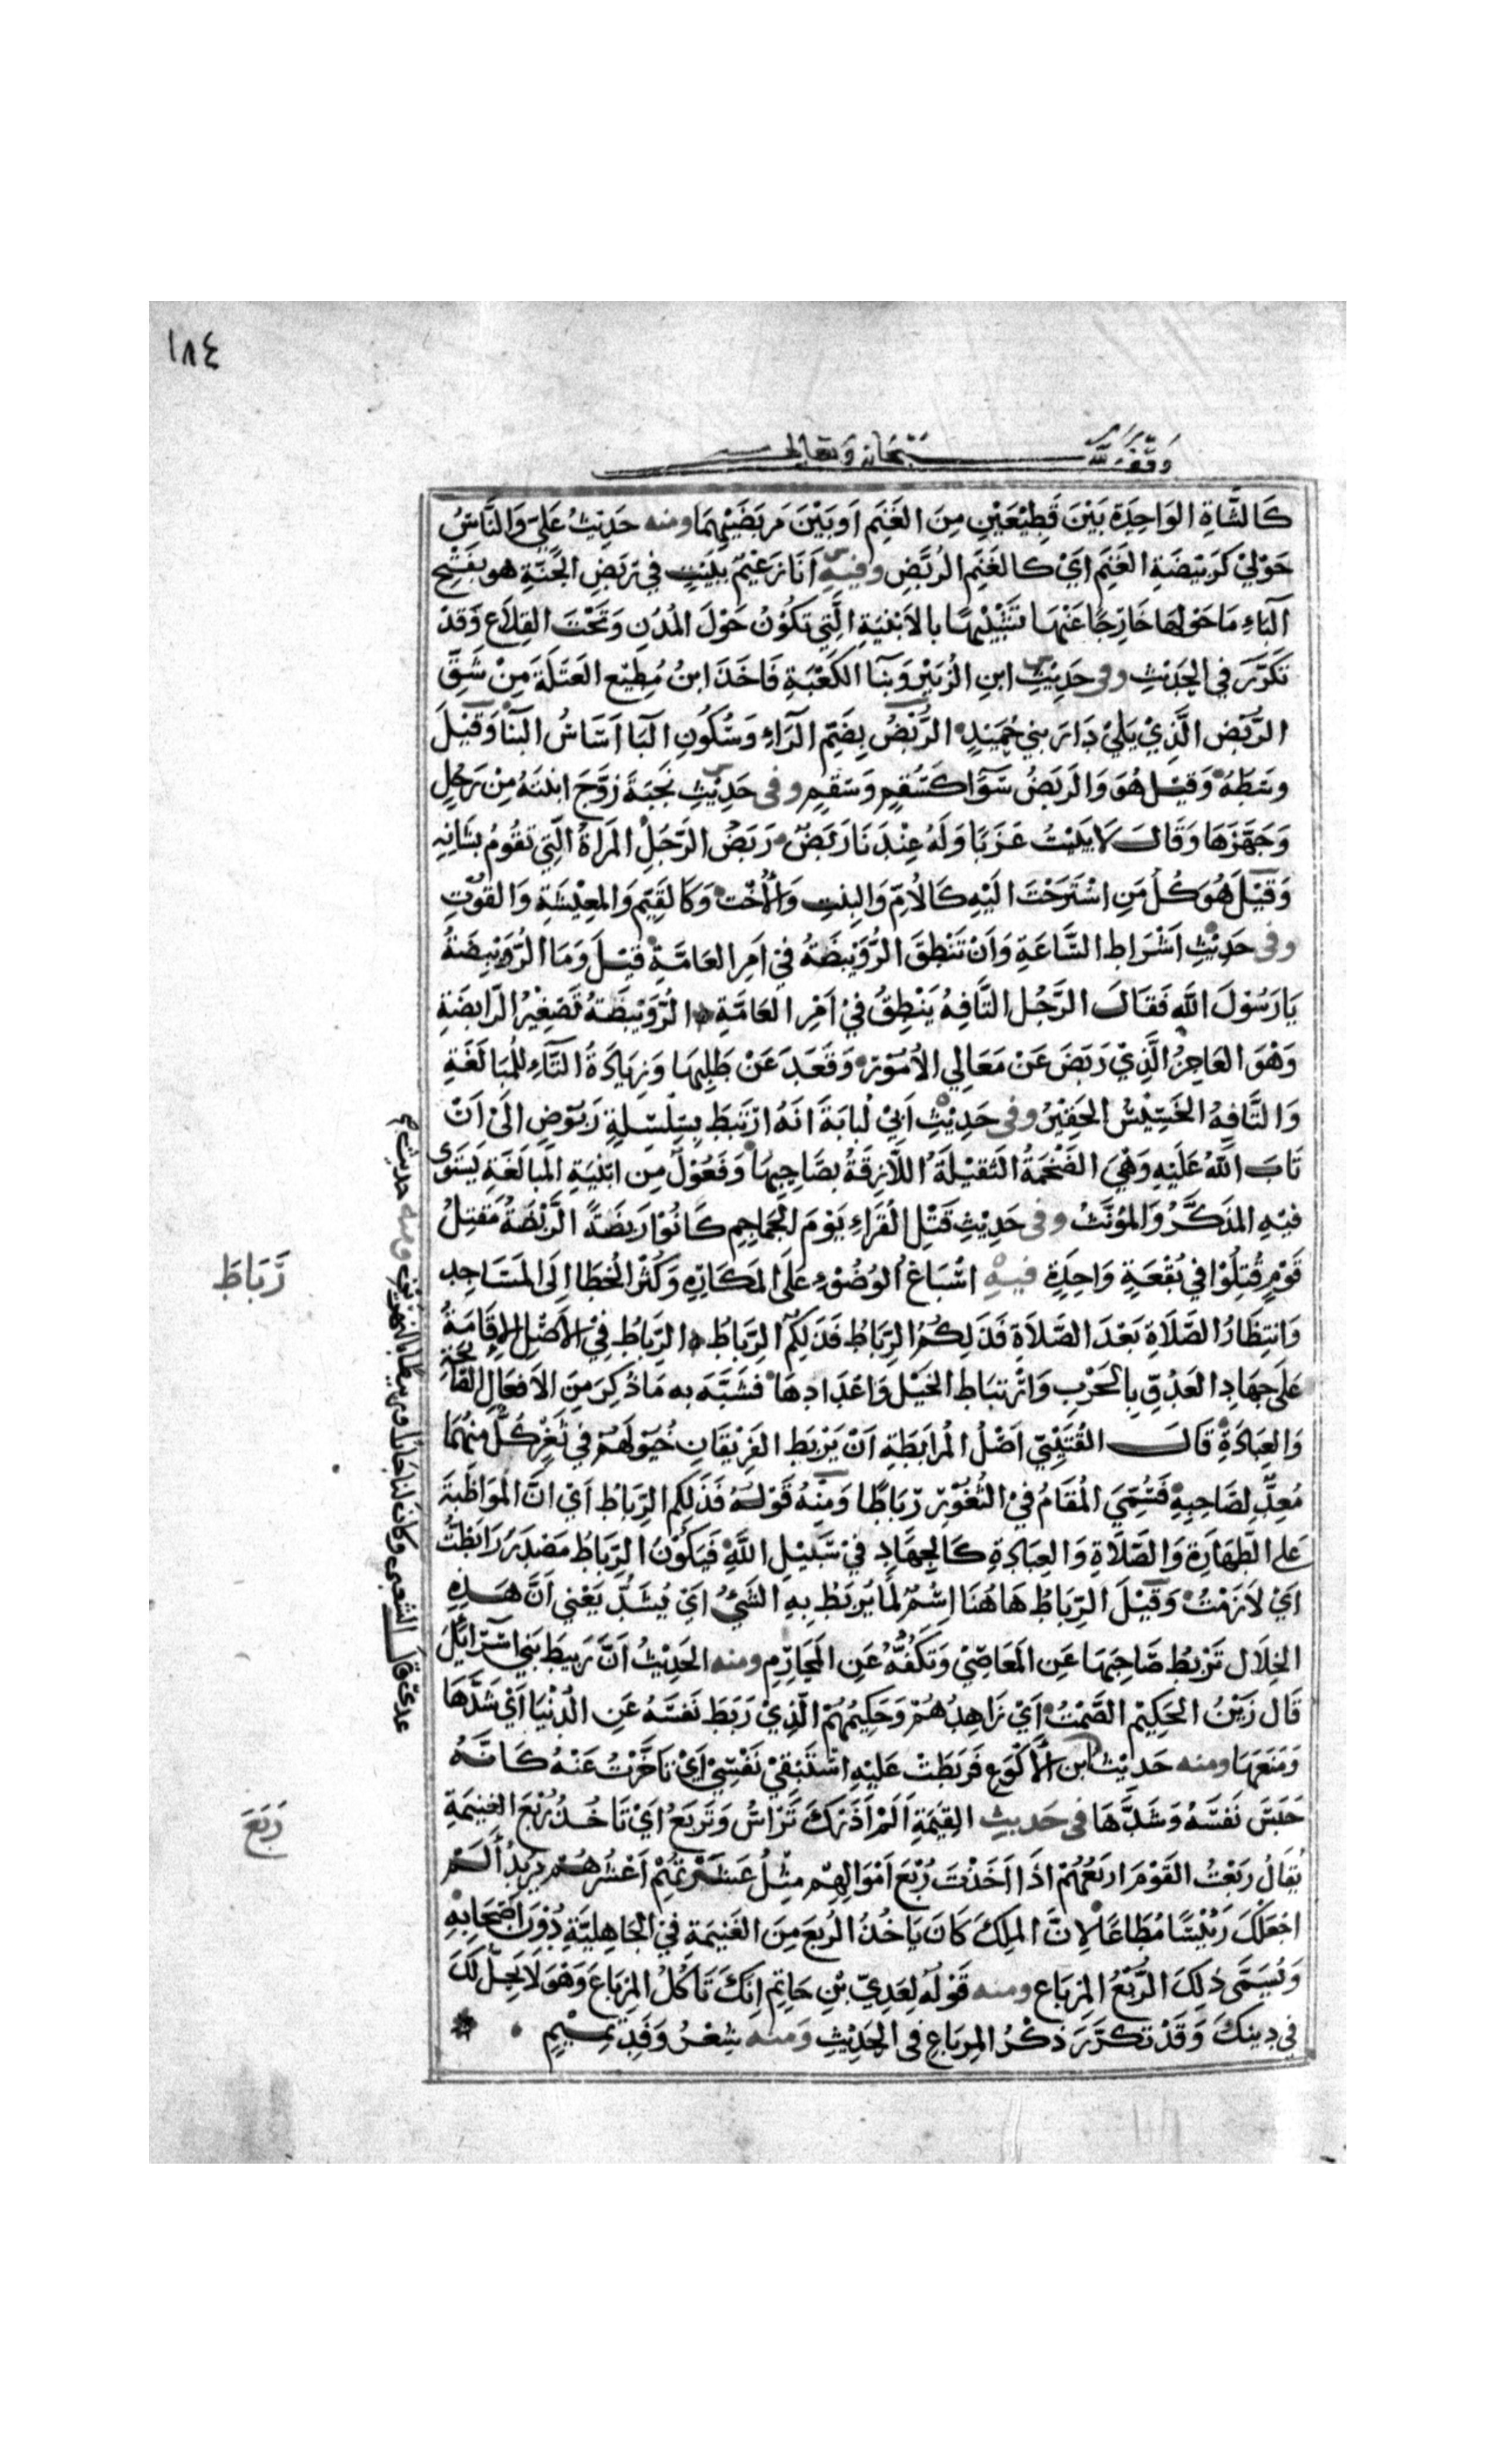 ١٨٤
وَقْفٌ لِلّٰهِ سُبْحَانَهُ وَتَعَالَى
كَالشَّاةِ الوَاحِدَةِ بَيْنَ قَطِيْعَيْنِ مِنَ الغَنَمِ اَوبَيْنَ مَرْبَضَيْهِمَا ومنه حَدِيْثُ عَلِيّ وَالنَّاسُ
حَوْلِيْ كَرَبِيْضَةِ الغَنَمِ اَيْ كَالغَنَمِ الرُّبَّضِ وفيه اَنَا زَعِيْمٌ بِبَيْتٍ فِي رَبَضِ الجَنَّةِ هو بِفَتْحِ
البَاءِ مَا حَوْلَهَا خَارِجًا عَنْهَا تَشْبِيْهًا بِالاَبْنِيَةِ الَّتِي تَكُوْنُ حَوْلَ المُدُنِ وَتَحْتَ القِلَاعِ وَقَدْ
تَكَرَّرَ فِي الحَدِيْثِ وفى حَدِيْثِ ابنِ الزُّبَيْرِ وَبِنَا الكَعْبَةِ فَاَخَذَ ابنُ مُطِيْعٍ العَتَلَةَ مِنْ شَقِّ
الرُّبْضِ الَّذِيْ يَلِيْ دَارَ بني حُمَيْدٍ الرُّبْضُ بِضَمِّ الرَّاءِ وَسُكُونِ البَا اَسَاسُ البِنَا وَقِيْلَ
وسَطُهُ وَقِيْلَ هُوَ وَالرَبَضُ سَوَاءٌ كَسُقْمٍ وَسَقَمٍ وفى حَدِيْثِ نَجَبَةَ زَوَّجَ ابْنَتَهُ مِنْ رَجُلٍ
وَجَهَّزَهَا وَقَالَ لَا يَبِيْتُ عَزَبًا وَلَهُ عِنْدَنَا رَبَضٌ رَبَضُ الرَّجُلِ المَراةُ الَّتِي تَقُومُ بِشَانِهِ
وَقِيْلَ هُوَ كُلُّ مَنِ اسْتَرَحْتَ اِلَيْهِ كَالاُمِّ وَالبِنْتِ وَالاُخْتِ وَكَالقَيِّمِ وَالمَعِيْشَةِ وَالقُوْتِ
وفى حَدِيْثِ اَشْرَاطِ السَّاعَةِ وَاَنْ تَنْطِقَ الرُّوَيْبِضَةُ فِي اَمرِ العَامَّةِ قِيْلَ وَمَا الرُّوَيْبِضَةُ
يَا رَسُوْلَ اللهِ فَقَالَ الرَّجُلُ التَّافِهُ يَنْطِقُ فِيْ اَمْرِ العَامَّةِ الرُّوَيْبِضَةُ تَصْغِيْرُ الرَّابِضَةِ
وَهْوَ العَاجِزُ الَّذِيْ رَبَضَ عَنْ مَعَالِي الاُمُوْرِ وَقَعَدَ عَنْ طَلَبِهَا وَزِيَادَةُ التَّاءِ لِلْمُبَالَغَةِ
وَالتَّافِهُ الخَسِيْسُ الحَقِيْرُ وفى حَدِيْثِ اَبِيْ لُبَابَةَ اَنَهُ ارْتَبَطَ بِسِلْسِلَةٍ رَبُوْضٍ اِلَى اَنْ
تَابَ اللهُ عَلَيْهِ وَهْيَ الضَّخْمَةُ الثَقِيْلَةُ اللَّازِقَةُ بِصَاحِبِهَا وَفَعُوْلٌ مِن ابْنِيَةِ المُبَالَغَةِ يَسْتَوِى
فِيْهِ المُذَكَّرُ وَالمُؤَنَّثُ وفى حَدِيْثِ قَتْلِ القُرَاءِ يَوْمَ الجَمَاجِمِ كَانُوْا رِبْضَةً الرِّبْضَةُ مَقْتِلُ
قَوْمٍ قُتِلُوْا فِي بُقْعَةٍ وَاحِدَةٍ فيه اِسْبَاغُ الوُضُوْءِ عَلَى المَكَارِهِ وَكَثْرُ الخُطَا اِلَى المَسَاجِدِ
وَانتِظَارُ الصَّلَاةِ بَعْدَ الصَّلَاةِ فَذَلِكُمُ الرِّبَاطُ فَذَلِكُمُ الرِّبَاطُ الرِّبَاطُ فِيْ الاَصْلِ الاِقَامَةُ
عَلَى جِهَادِ العَدُوِّ بِالحَرْبِ وَارْتِبَاطِ الخَيْلِ وَاعْدَادِهَا فَشَبَّهَ بِهِ مَا ذُكِرَ مِنَ الاَفعَالِ الصَّالِحَةِ
وَالعِبَادَةِ قَالَ القُتَيْبِيّ اَصْلُ المُرَابَطَةِ اَنْ يَرْبِطَ الفَرِيْقَانِ خُيُوْلَهُمْ فِي ثَغْرٍ كُلٌّ مِنْهُمَا
مُعِدٌّ لِصَاحِبِهِ فَسُمِّيَ المُقَامُ فِيْ الثُّغُوْرِ رِبَاطًا وَمِنْهُ قَوْلُهُ فَذَلِكُم الرِّبَاطُ اَيْ اَنَّ المُوَاظَبَةَ
عَلَى الطَّهَارَةِ وَالصَّلَاةِ وَالعِبَادَةِ كَالجِهَادِ فِيْ سَبِيْلِ اللهِ فَيَكُوْنُ الرِّبَاطُ مَصْدَرُ رَابَطْتُ
اَيْ لَازَمْتُ وَقِيْلَ الرِّبَاطُ هَاهُنَا اِسْمٌ لِمَا يُرْبَطُ بِهِ الشَيْءُ اَيْ يُشَدُّ يَعْنِي اَنَّ هَذِهِ
الخِلَالَ تَرْبُطُ صَاحِبَهَا عَنِ المَعَاصِيْ وَتَكُفُّهُ عَنِ المَحَارِمِ ومنه الحَدِيْثُ اَنَّ رَبِيْطَ بَنِي اِسْرَائِيْلَ
قَالَ زَيْنُ الحَكِيْمِ الصَّمْتُ اَيْ زَاهِدُهُمْ وَحَكِيْمُهُمْ الَّذِيْ رَبَطَ نَفسَهُ عَنِ الدُّنْيَا اَيْ شَدَّهَا
وَمَنَعَهَا ومنه حَدِيْثُ ابن الاَكْوَعِ فَرَبَطْتُ عَلَيْهِ اسْتَبْقِيْ نَفْسِيْ اَيْ تَاَخَّرْتُ عَنْهُ كَانَّهُ
حَبَسَ نَفْسَهُ وَشَدَّهَا فى حَدِيثِ القِيَمَةِ اَلَمْ اَذَرْكَ تَرْاَسُ وَتَرْبَعُ اَيْ تَاخُذُ رُبْعَ الغَنِيْمَةِ
يُقَالُ رَبَعْتُ القَوْمَ اَربَعُهُمْ اِذَا اَخَذْتَ رُبْعَ اَمْوَالِهِمْ مِثْلُ عَشَرْتُهُمْ اَعْشُرُهُمْ يُرِيْدُ اَلَمْ
اَجْعَلْكَ رَئِيْسًا مُطَاعًا لِانَّ المَلِكَ كَانَ يَاخُذُ الرُبعَ مِنَ الغَنِيمَةِ فِيْ الجَاهِلِيَّةِ دُوْنَ اَصْحَابِهِ
وَيُسَمَّى ذَلِكَ الرُّبْعُ المِرْبَاعَ ومنه قَوْلُهُ لِعَدِيِّ بْنِ حَاتِمٍ اِنَّكَ تَاكُلُ المِرْبَاعَ وَهْوَ لَا يَحِلُّ لَكَ
فِي دِيْنِكَ وَقَدْ تَكَرَّرَ ذِكْرُ المِربَاعِ فى الحَدِيْثِ وَمنه شِعْرُ وَفْدِ تَمِيْمٍ
رَّبَاطَ
رَبَعَ
عدى قال الشعبى وكان لنا جارا وربيطا بالنهرين ومنه حديث